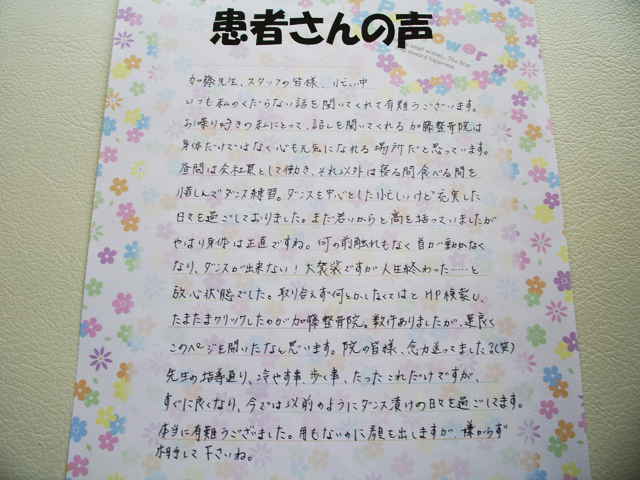 患者さんの声
Flower
small wishes. The first
toward happiness
加藤先生、スタッフの皆様、忙い中
いつも私のくだらない話を聞いてくれて有難うございます。
お喋り好きの私にとって、話しを聞いてくれる加藤整骨院は
身体だけではなく心も元気になれる場所だと思っています。
昼間は会社員として働き、それ以外は寝る間食べる間を
惜しんでダンス練習。ダンスを中心とした忙しいけど充実した
日々を過ごしておりました。まだ若いからと高を括っていましたが
やはり身体は正直ですね。何の前触れもなく首が動かなく
なり、ダンスが出来ない!大袈裟ですが人生終わった……と
放心状態でした。取り合えず何とかしなくてはとHP検索し、
たまたまクリックしたのが加藤整骨院。数件ありましたが、運良く
このページを開いたなと思います。院の皆様、念力送ってました?(笑)
先生の指導通り、冷やす事、歩く事、たったこれだけですが、
すぐに良くなり、今では以前のようにダンス漬けの日々を過ごしてます。
本当に有難うございました。用もないのに顔を出しますが、嫌がらず
相手して下さいね。